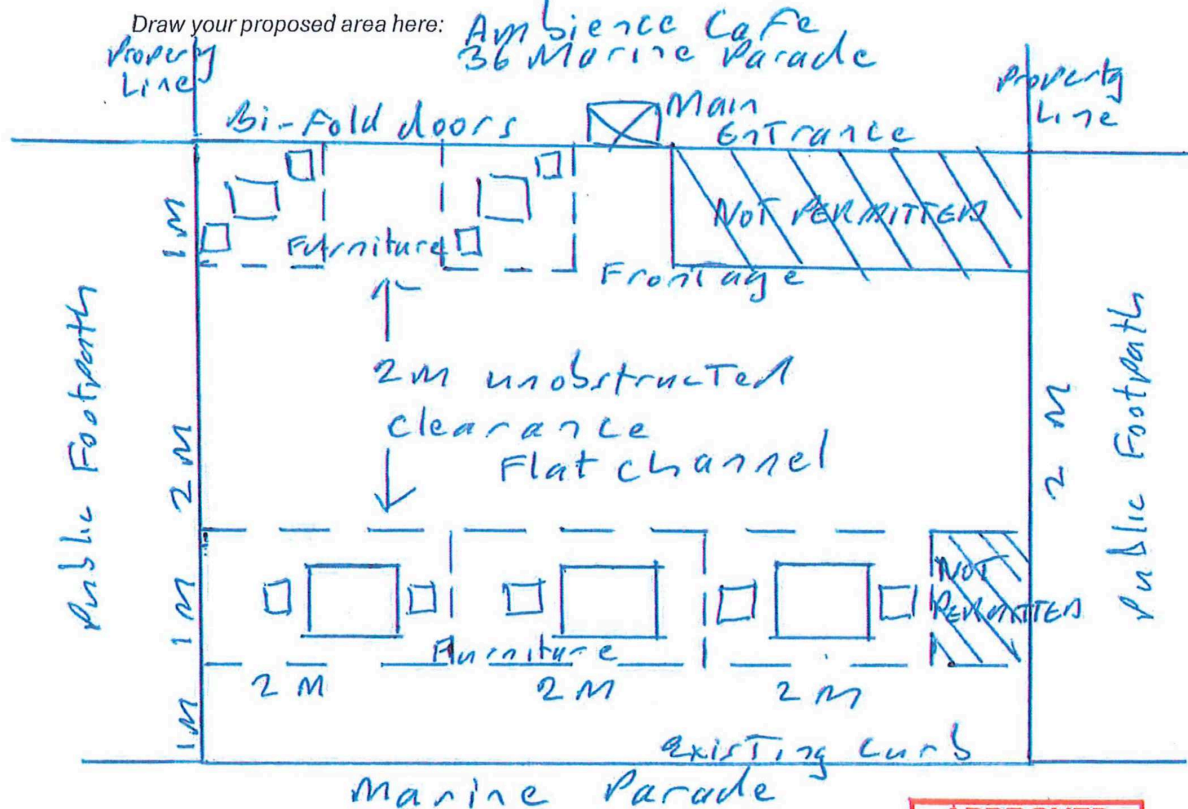 Draw your proposed area here:
Ambience Cafe
36 Marine Parade
Property
Line
Property
Line
Bi-Fold doors
Main
EnTrance
1M
Furniture
NOT PERMITTED
Frontage
Public Footpath
2M unobstrucTed
clearance
Flat channel
2 M
2 M
Public Footpath
1 M
Furniture
NOT
PERMITTED
2 M
2 M
2 M
1M
ExisTing curb
Marine Parade